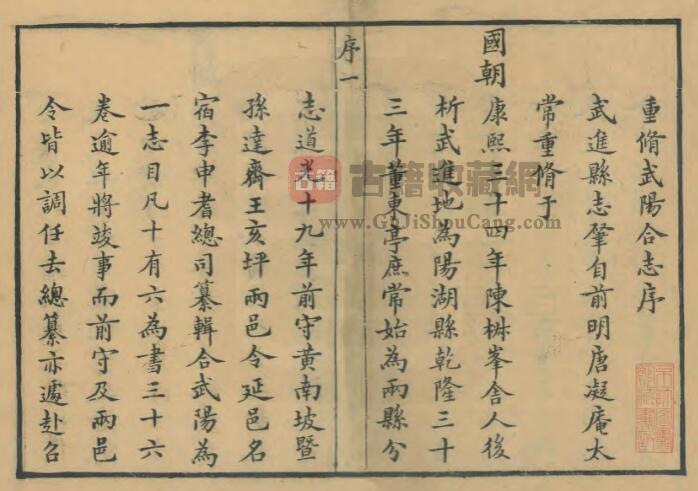 重脩武陽合志序
武進縣志肇自前明唐凝庵太
常重脩于
國朝康熙三十四年陳椒峯舍人後
析武進地為陽湖縣乾隆三十
三年董東亭庶常始為兩縣分
序一
志道光十九年前守黄南坡暨
孫達齋王亥坪兩邑令延邑名
宿李申耆總司纂輯合武陽為
一志目凡十有六為書三十六
卷逾年將竣事而前守及兩邑
令皆以調任去總纂亦遽赴召
古籍
古籍收藏網
www.GuJiShouCang.com